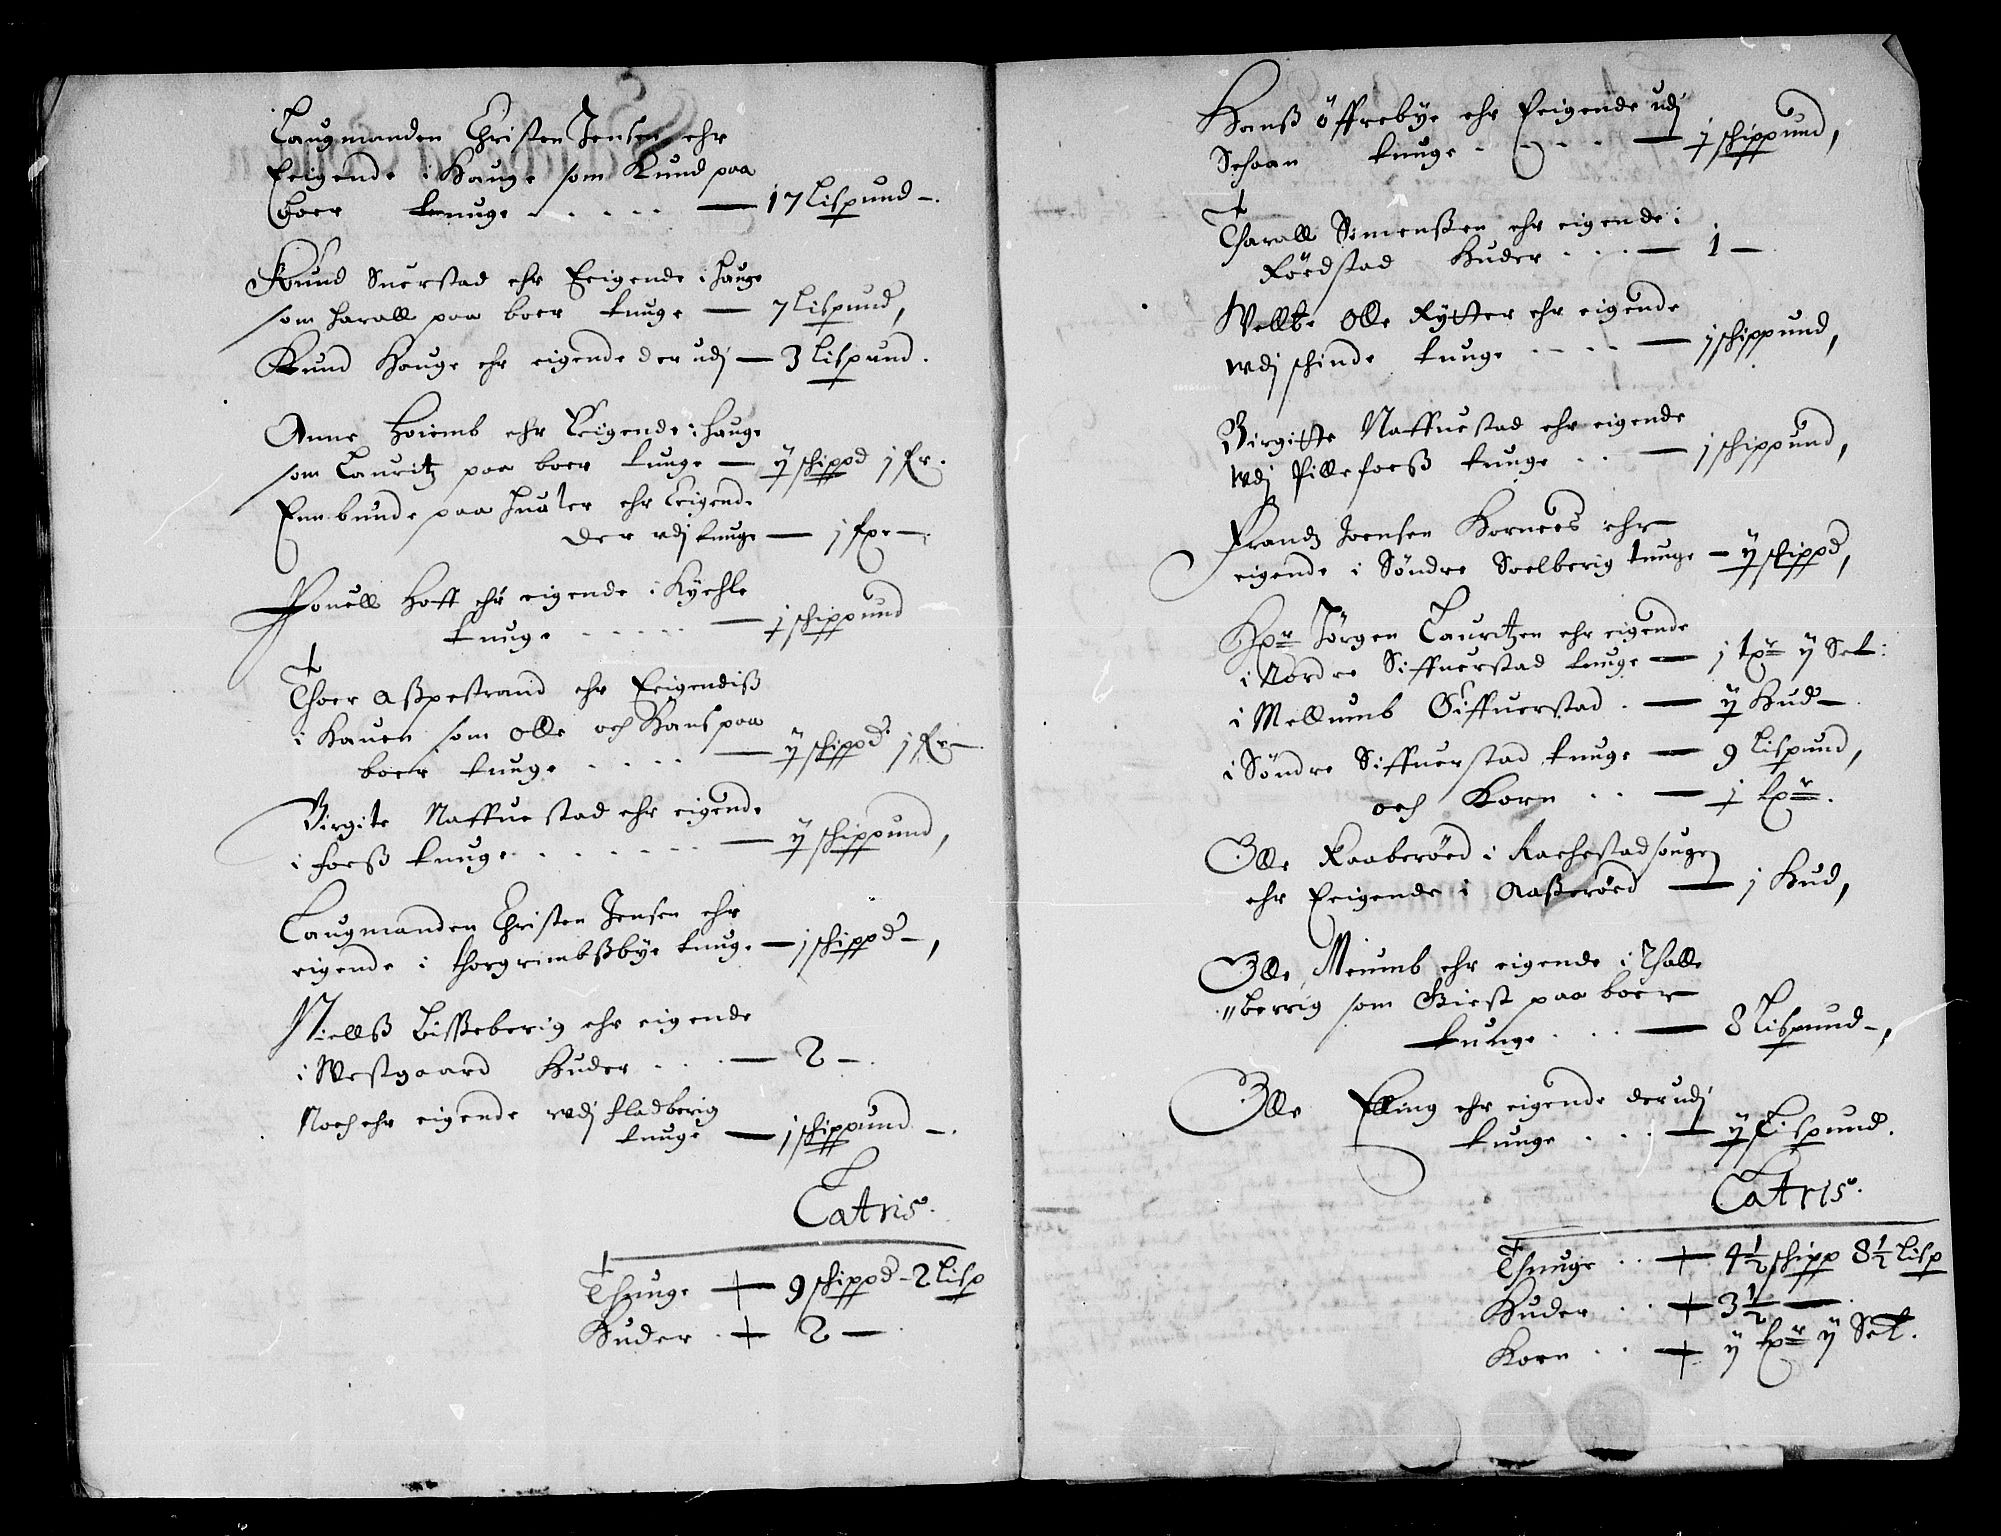 Laugmanden Christen Jensen ehr
Eeigende i Hauge som Knud paa
boer tunge — 17 Lispund –.
Knud Suerstad ehr Eeigende i Hauge
som Harall paa boer tunge — 7 Lispund,
Knud Houge ehr eigende der udj — 3 Lispund.
Anne Hoiemb ehr Eeigende i Hauge
som Lauritz paa boer tunge — ÿ schippd j fr.
Enn bunde paa Hualer ehr Eeigende
der vdj tunge — j fxr —.
Pouell Hoff ehr eigende i Kyehle
tunge — j schippund
Thoer Asspestrand ehr Eeigendiss
i Hauen som Olle och Hans paa
boer tunge — ÿ schippd j fr —.
Birgite Naffuestad ehr eigende
i foess tunge — ÿ schippund,
Laugmanden Christen Jensen ehr
eigende i thorgrimbssbye tunge — j schippd –,
Niellss Bisseberig ehr eigende
i Westgaard Huder — 2 –.
Noch ehr eigende vdj fladberig
tunge — j schippund –.
Latris.
Thunge — 9 schippd – 2 Lisp
Huder — 2 —.
Hanss Öffrebye ehr Eeigende udj
tunge — j schippund,
Tharall Simenssen ehr eigende i
Röedstad Huder — 1 –
Wellbe Olle Rytter ehr eigende
wdj schinde tunge — j schippund,
Birgitte Naffuestad ehr eigende
wdj lille foess tunge — j schippund,
Frandz Joensen Hornees ehr
eigende i Söndre Soelberig tunge – ÿ schippd,
Hpr Jörgen Lauritzen ehr eigende
i Nordre Siffuerstad tunge — j fxr ÿ Set:
i Mellumb Siffuerstad. — ÿ Hud –.
i Söndre Siffuerstad tunge — 9 Lispund,
och Korn — j fxr.
Olle Raaberöed i Rachestad sougen
ehr Eeigende i Aasseröed — j Hud,
Olle Meiumb ehr eigende i Thalle
"berrig som Giest paa boer
tunge — 8 Lispund –,
Olle Elling ehr eigende der udj
tunge — ÿ Lispund.
Latris.
Thunge — 4½ schipp 8½ Lisp
Huder — 3½ —.
Korn — ÿ fxr ÿ Set.